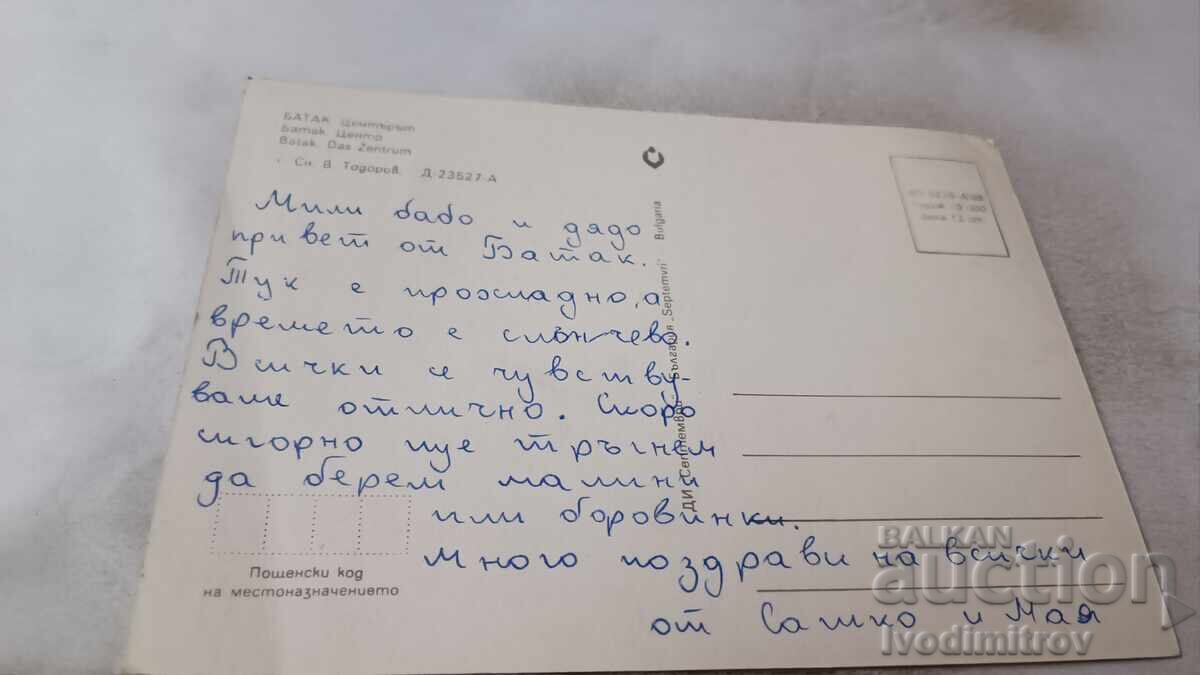 БАТАК Центърът
Батак Центр
Batak. Das Zentrum
Сн. В. Тодоров. Д-23527-А
Мили бабо и дядо
привет от Батак.
Тук е прохладно, а
времето е слънчево.
Всички се чувству-
ваме отлично. Скоро
сигорно ще тръгнем
да берем малини
или боровинки.
Много поздрави на всички
от Сашко и Мая
Пощенски код
на местоназначението
ДИ „Септември“ България „Septemvri“ Bulgaria
BALKAN
auction
Ivodimitrov